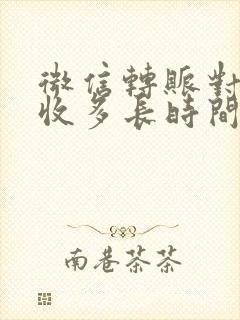 微信轉賬對
收多長時間
南巷茶茶